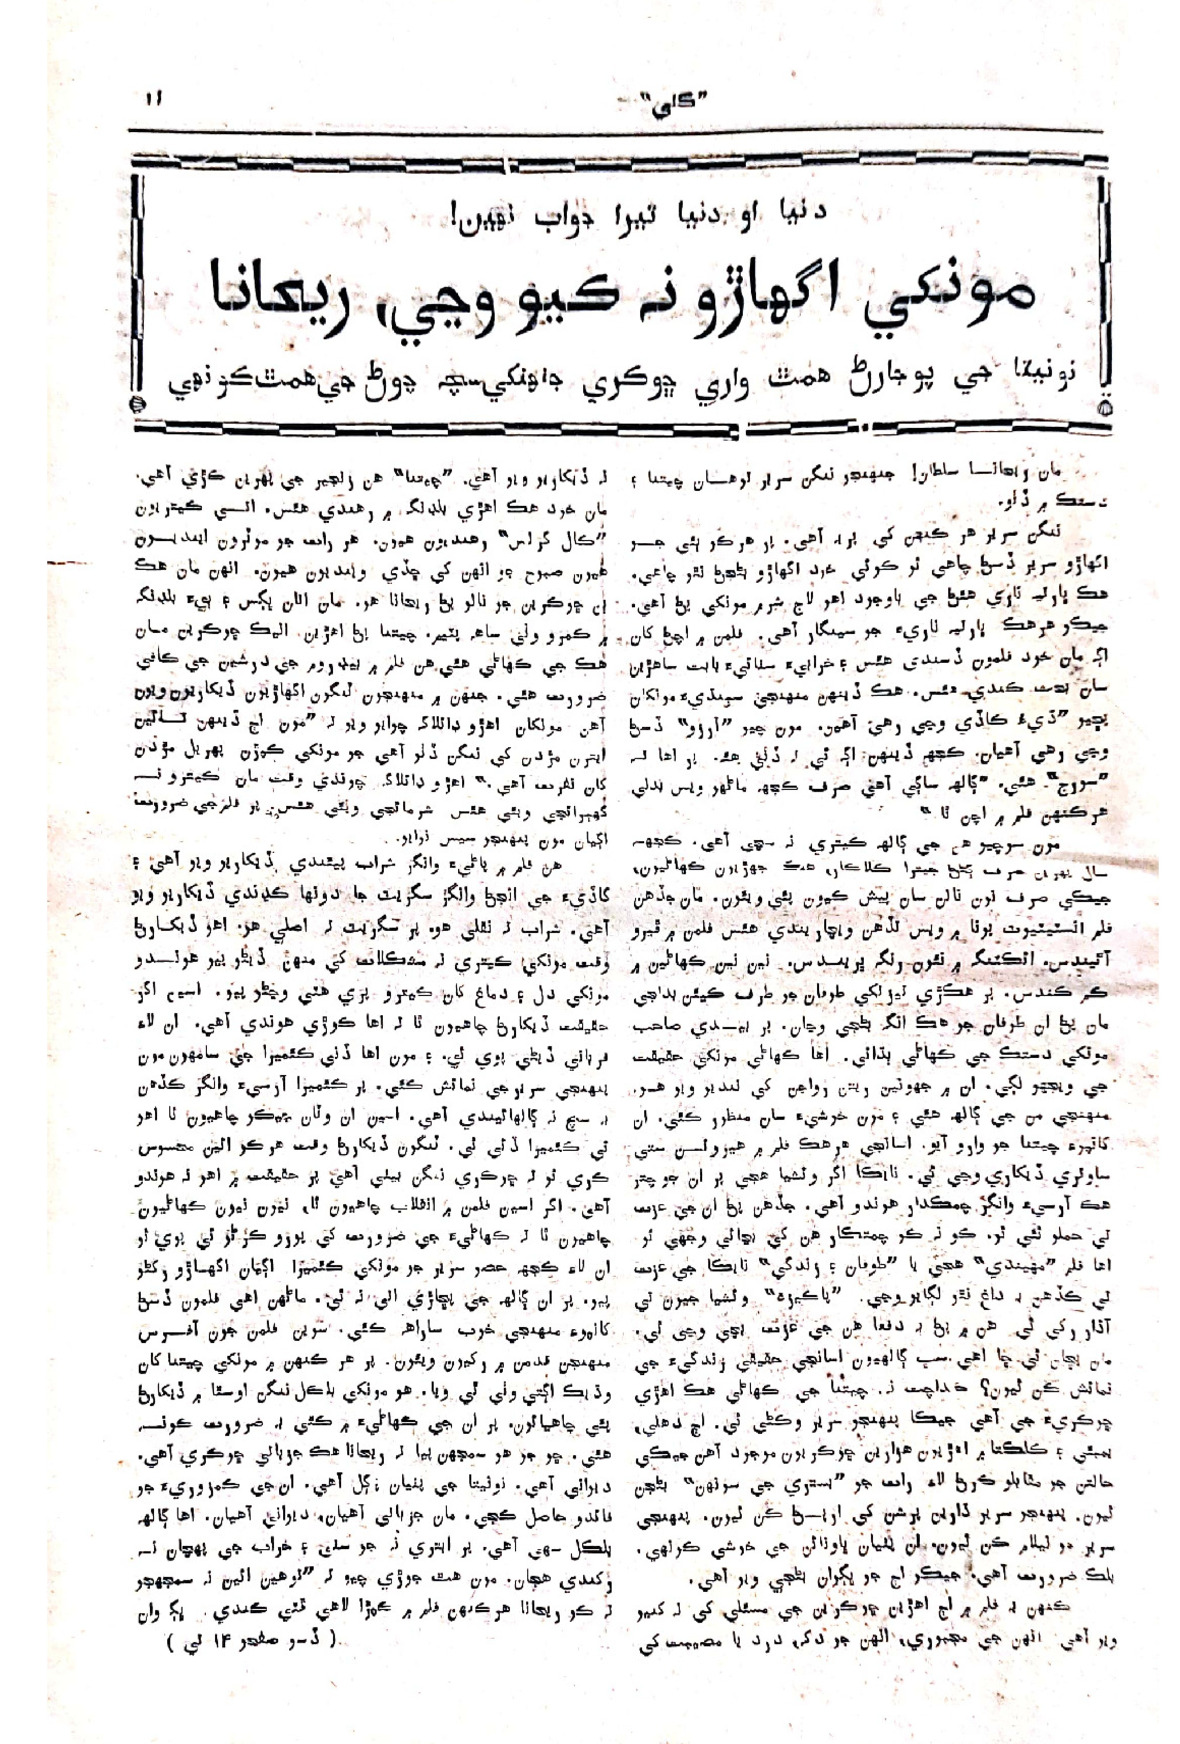 "ڪلي"
۱۱
دنيا او دنيا تيرا جواب نهين!
مونکي اگهاڙو نہ ڪيو وڃي، ريحانا
نونيتا جي پوڄارڻ همت واري ڇوڪري جاهنکي سچ چوڻ جي همت ڪو نهي
مان ريحانا سلطان! جنهنجو ننگن سرير توهسان چيتنا ۽
دستڪ ۾ ڏٺو.
ننگن سرير هر ڪنهن کي پريه آهي. پر هر ڪو ٻئي جو
اگهاڙو سرير ڏسڻ چاهي ٿو ڪوئي خود اگهاڙو ٿيڻ نٿو چاهي.
هڪ ڀارتيه ناري هئڻ جي باوجود اهو لاج شرم مونکي پڻ آهي.
جيڪو هر هڪ ڀارتيه ناريءَ جو سينگار آهي. فلمن ۾ اچڻ کان
اڳ مان خود فلمون ڏسندي هئس ۽ خرابيءَ سٺائيءَ بابت ساهڙين
سان بحث ڪندي هئس. هڪ ڏينهن منهنجي سهيليءَ مونکان
پڇيو "ڏيءَ ڪاڏي وڃي رهي آهين. مون چيو "آرزو" ڏسڻ
وڃي رهي آهيان. ڪجهه ڏينهن اڳ ئي تہ ڏٺي هئم. پر اها تہ
"سورج" هئي. "ڳالهه ساڳي آهي صرف ڪجهه ماڻهو ويس بدلي
هر ڪنهن فلم ۾ اچن ٿا"
مون سوچيو هن جي ڳالهه ڪيتري نہ سچي آهي. ڪجهه
جيڪي صرف نون نالن سان پيش ڪيون پئي ويون. مان جڏهن
فلم انسٽيٽيوٽ پونا ۾ ويس تڏهن ويچاريندي هئس فلمن ۾ ڦيرو
آڻينديس. ائڪٽنگ ۾ نئون رنگ ڀرينديس. نين نين ڪهاڻين ۾
ڪم ڪنديس.
مان پڻ ان طوفان جو هڪ انگ بڻجي وڃان.
مونکي دستڪ جي ڪهاڻي ٻڌائي. اها ڪهاڻي مونکي حقيقت
جي ويجهو لڳي. ان ۾ جهونين ريتن رواجن کي ننديو ويو هو.
منهنجي من جي ڳالهه هئي ۽ مون خوشيءَ سان منظور ڪئي. ان
کانپوءِ چيتنا جو وارو آيو. اسانجي هر هڪ فلم ۾ هيروئن ستي
ساوتري ڏيکاري وڃي ٿي. نائڪا اگر وئشيا هجي پر ان جو چتر
هڪ آرسيءَ وانگر چمڪدار هوندو آهي. جڏهن پڻ ان جي عزت
تي حملو ٿئي ٿو. ڪو نہ ڪو چمتڪار هن کي بچائي وجهي ٿو
اها فلم "مهندي" هجي يا "طوفان ۽ زندگي" نائڪا جي عزت
تي ڪڏهن بہ داغ نٿو لڳايو وڃي. "پاڪيزه" وئشيا جيون تي
آڌار رکي ٿي هن ۾ پڻ ٻہ دفعا هن جي عزت بچي وڃي ٿي.
مان پڇان ٿي ڇا اهي سڀ ڳالهيون اسانجي حقيقي زندگيءَ جي
نمائش ڪن ٿيون؟ خداچت نہ. چيتنا جي ڪهاڻي هڪ اهڙي
ڇوڪريءَ جي آهي جيڪا پنهنجو سرير وڪڻي ٿي. اڄ دهلي،
بمبئي ۽ ڪلڪتا ۾ اهڙيون هزارين ڇوڪريون موجود آهن جيڪي
حالتن جو مقابلو ڪرڻ لاءِ رات جو "استري جي سونهن" بڻجن
ٿيون. پنهنجو سرير ڌارين پرشن کي ارپڻ ڪن ٿيون. پنهنجي
سرير جو نيلام ڪن ٿيون.
بلڪ ضرورت آهي. جيڪو اڄ جو ڀڳوان بڻجي ويو آهي.
ڪنهن بہ فلم ۾ اڄ اهڙين ڇوڪرين جي مسئلي کي نہ کنيو
ويو آهي انهن جي مجبوري، انهن جو دک، درد يا مصيبت کي
نہ ڏيکاريو ويو آهي. "چيتنا" هن زنجير جي پهرين ڪڙي آهي.
مان خود هڪ اهڙي بلڊنگ ۾ رهندي هئس. اتي ڪيتريون
"ڪال گرلس" رهنديون هيون. هر رات جو موٽرون اينديون
هيون صبح جو انهن کي ڇڏي وينديون هيون. انهن مان هڪ
ٻن ڇوڪرين جو نالو پڻ ريحانا هو.
۾ ڪمرو وٺي ساهہ پٽيم. چيتنا پڻ اهڙين انيڪ ڇوڪرين مان
هڪ جي ڪهاڻي هئي هن فلم ۾ بيڊروم جي درشين جي ڪافي
ضرورت هئي. جنهن ۾ منهنجون ٽنگون اگهاڙيون ڏيکاريون ويون
آهن مونکان اهڙو ڊائلاگ چوايو ويو تہ "مون اڄ ڏينهن تائين
ايترن مردن کي ننگن ڏٺو آهي جو مونکي ڪپڙن پهريل مردن
کان نفرت آهي." اهڙو ڊائلاگ چوندي وقت مان ڪيترو نہ
گهبرائجي ويئي هئس شرمائجي ويئي هئس. پر فلم جي ضرورت
اڳيان مون پنهنجو سيس نوايو.
هن فلم ۾ پاڻيءَ وانگر شراب پيئندي ڏيکاريو ويو آهي ۽
گاڏيءَ جي انجڻ وانگر سگريٽ جا دونها ڪڍندي ڏيکاريو ويو
آهي. شراب تہ نقلي هو. پر سگريٽ تہ اصلي هو. اهو ڏيکارڻ
وقت مونکي ڪيتري نہ مشڪلات کي منهن ڏيڻو پيو هوندو
مونکي دل ۽ دماغ کان ڪيترو پري هٽي وڃڻو پيو. اسين اگر
حقيقت ڏيکارڻ چاهيون ٿا تہ اها ڪوڙي هوندي آهي. ان لاءِ
قرباني ڏيڻي پوي ٿي. ۽ مون اها ڏني ڪئميرا جي سامهون مون
پنهنجي سرير جي نمائش ڪئي. پر ڪئميرا آرسيءَ وانگر ڪڏهن
بہ سچ نہ ڳالهائيندي آهي. اسين ان وٽان جيڪو چاهيون ٿا اهو
ئي ڪئميرا ڏئي ٿي. ٽنگون ڏيکارڻ وقت هر ڪو ائين محسوس
ڪري ٿو تہ ڇوڪري ننگن بيٺي آهي پر حقيقت ۾ اهو نہ هوندو
آهي. اگر اسين فلمن ۾ انقلاب چاهيون ٿا، نيون نيون ڪهاڻيون
چاهيون ٿا تہ ڪهاڻيءَ جي ضرورت کي پورو ڪرڻو ئي پوي ٿو
ان لاءِ ڪجهه حصو سرير جو مونکي ڪئميرا اڳيان اگهاڙو رکڻو
پيو. پر ان ڳالهه جي پڇاڙي اتي نہ ٿي. ماڻهن اهي فلمون ڏسڻ
کانپوءِ منهنجي خوب ساراهہ ڪئي. نوين فلمن جون آفرس
منهنجن قدمن ۾ رکيون ويون. پر هر ڪنهن ۾ مونکي چيتنا کان
وڌيڪ اڳتي وٺي ٿي ويا. هو مونکي بلڪل ننگن اوسٿا ۾ ڏيکارڻ
پئي چاهيائون. پر ان جي ڪهاڻيءَ ۾ ڪٿي بہ ضرورت ڪونہ
هئي. ڇو جو هو سمجهن پيا تہ ريحانا هڪ جزباتي ڇوڪري آهي.
ديواني آهي. نونيتا جي پٺيان پاڳل آهي. ان جي ڪمزوريءَ جو
فائدو حاصل ڪجي. مان جزباتي آهيان، ديواني آهيان. اها ڳالهه
بلڪل سهي آهي. پر ايتري نہ جو سٺي ۽ خراب جي پهچان نہ
رکندي هجان. مون هٿ جوڙي چيو تہ "توهين ائين نہ سمجهجو
تہ ڪو ريحانا هر ڪنهن فلم ۾ ڪپڙا لاهي ٿئي ڪندي. ڀڳوان
( ڏسو صفحو ۱۴ تي )